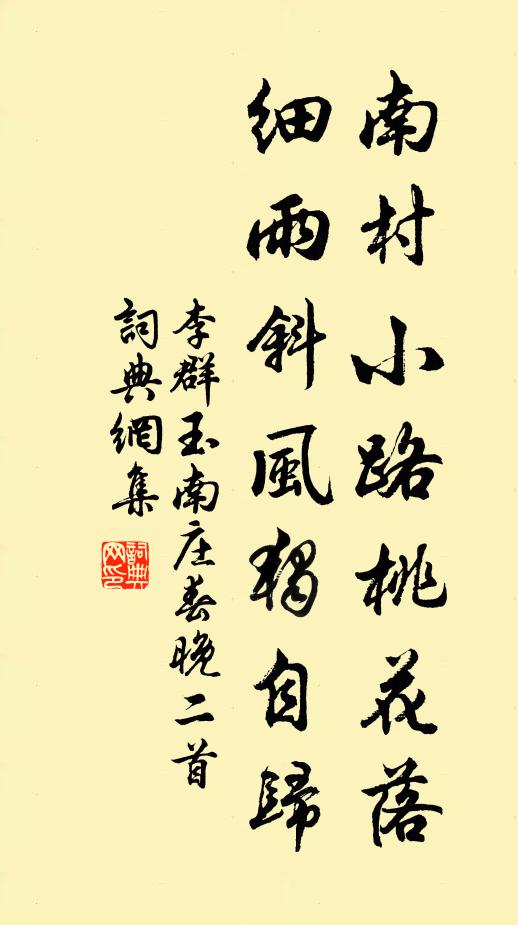 南村小路桃花落
細雨斜風獨自歸
李群玉南庄春晚二首
詞典網集
詞典网印